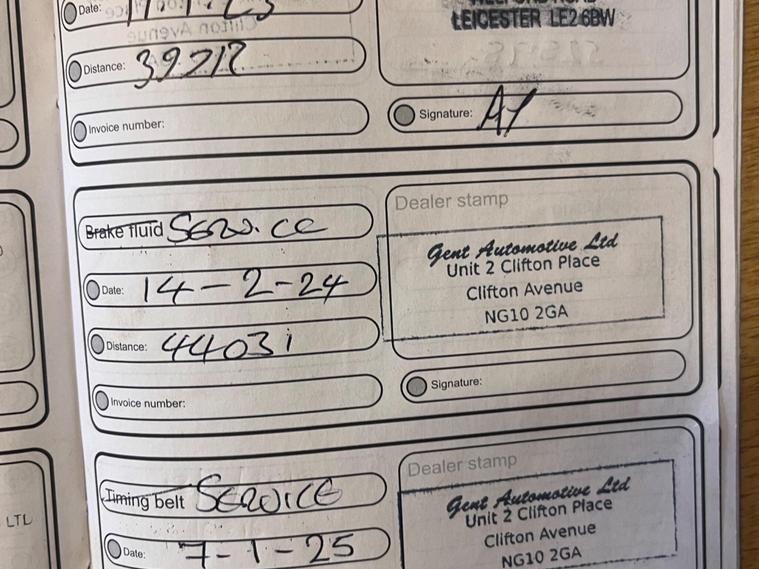 Date:
LEICESTER LE2 6BW
Distance: 39212
Invoice number:
Signature: AY
Dealer stamp
Brake fluid Service
Gent Automotive Ltd
Unit 2 Clifton Place
Clifton Avenue
NG10 2GA
Date: 14-2-24
Distance: 44031
Invoice number:
Signature:
Dealer stamp
Timing belt SERVICE
Gent Automotive Ltd
Unit 2 Clifton Place
Clifton Avenue
NG10 2GA
Date: 7-1-25
LTL